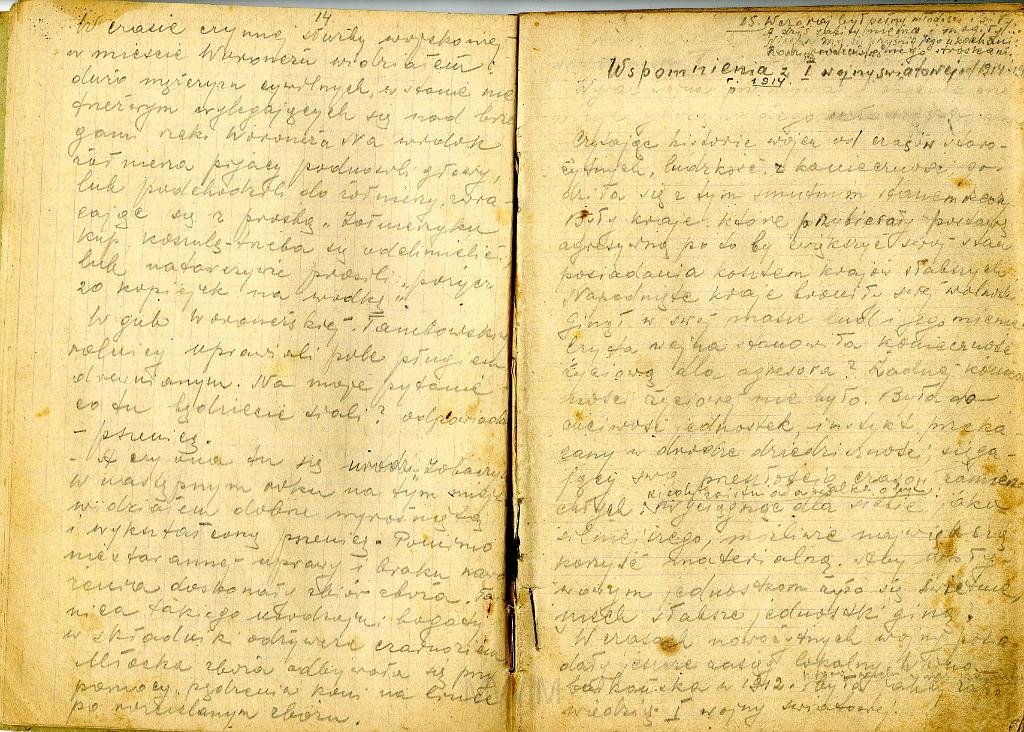 14.
W czasie czynnej służby wojskowej
w mieście Woroneżu widziałem
dużo mężczyzn cywilnych, w stanie nie
trzeźwym wylegających się nad brze
gami rzeki Woroneża. Na widok
żołnierza pijacy podnosili głowy,
lub podchodzili do żołnierzy, zwra
cając się z prośbą „żołnierzyku
kup koszulę - trzeba się odchmielić"
lub natarczywie prosili „pożycz
20 kopiejek na wódkę".
W gub. Woroneskiej, Tambowskiej
rolnicy uprawiali pole pługiem
drewnianym. Na moje pytanie
co tu będziecie siali? odpowiada
- pszenicę.
- A czy ona tu się urodzi, zobaczy
W następnym roku na tym miejs
widziałem dobrze wyrośniętą
i wykształconą pszenicę. Pomimo
niestarannej uprawy i braku nawo
żenia doskonały zbiór zboża. Ta
nica takiego urodzaju, bogaty
w składnik odżywcze czarnoziem
Młocka zboża odbywała się przy
pomocy pędzenia koni na
po rozesłanym zbożu.
15. Wczoraj był pełny młodości
a dziś
Wspomnienia z I wojny światowej 1914
r. 1914.
Czytając historię wojen od czasów staro-
żytnych, ludzkość z konieczności go-
dziła się z tym smutnym stanem rzeczy
Były kraje które przybierały postawę
agresywną po to by zwiększyć swój stan
posiadania kosztem krajów słabszych
Napadnięte kraje broniły swej wolności
Ginął w swej masie lud i jego mienie
Czy ta wojna stanowiła konieczność
życiową dla agresora? Żadnej koniecz
ności życiowej nie było. Była to
chciwość jednostek, instykt przeka
zany w drodze dziedziczności, sięga-
jący swą przeszłością czasów zamierz
chłych. wyciągając dla siebie, jako
silniejszego, możliwie największą
korzyść materialną. Aby
wodzym jednostkom żyło się świetnie
niech słabsze jednostki giną.
W czasach nowożytnych wojny posia
dały jeszcze zasięg lokalny. Wojna
bałkańska w 1912. była
wiedzią I wojny światowej.